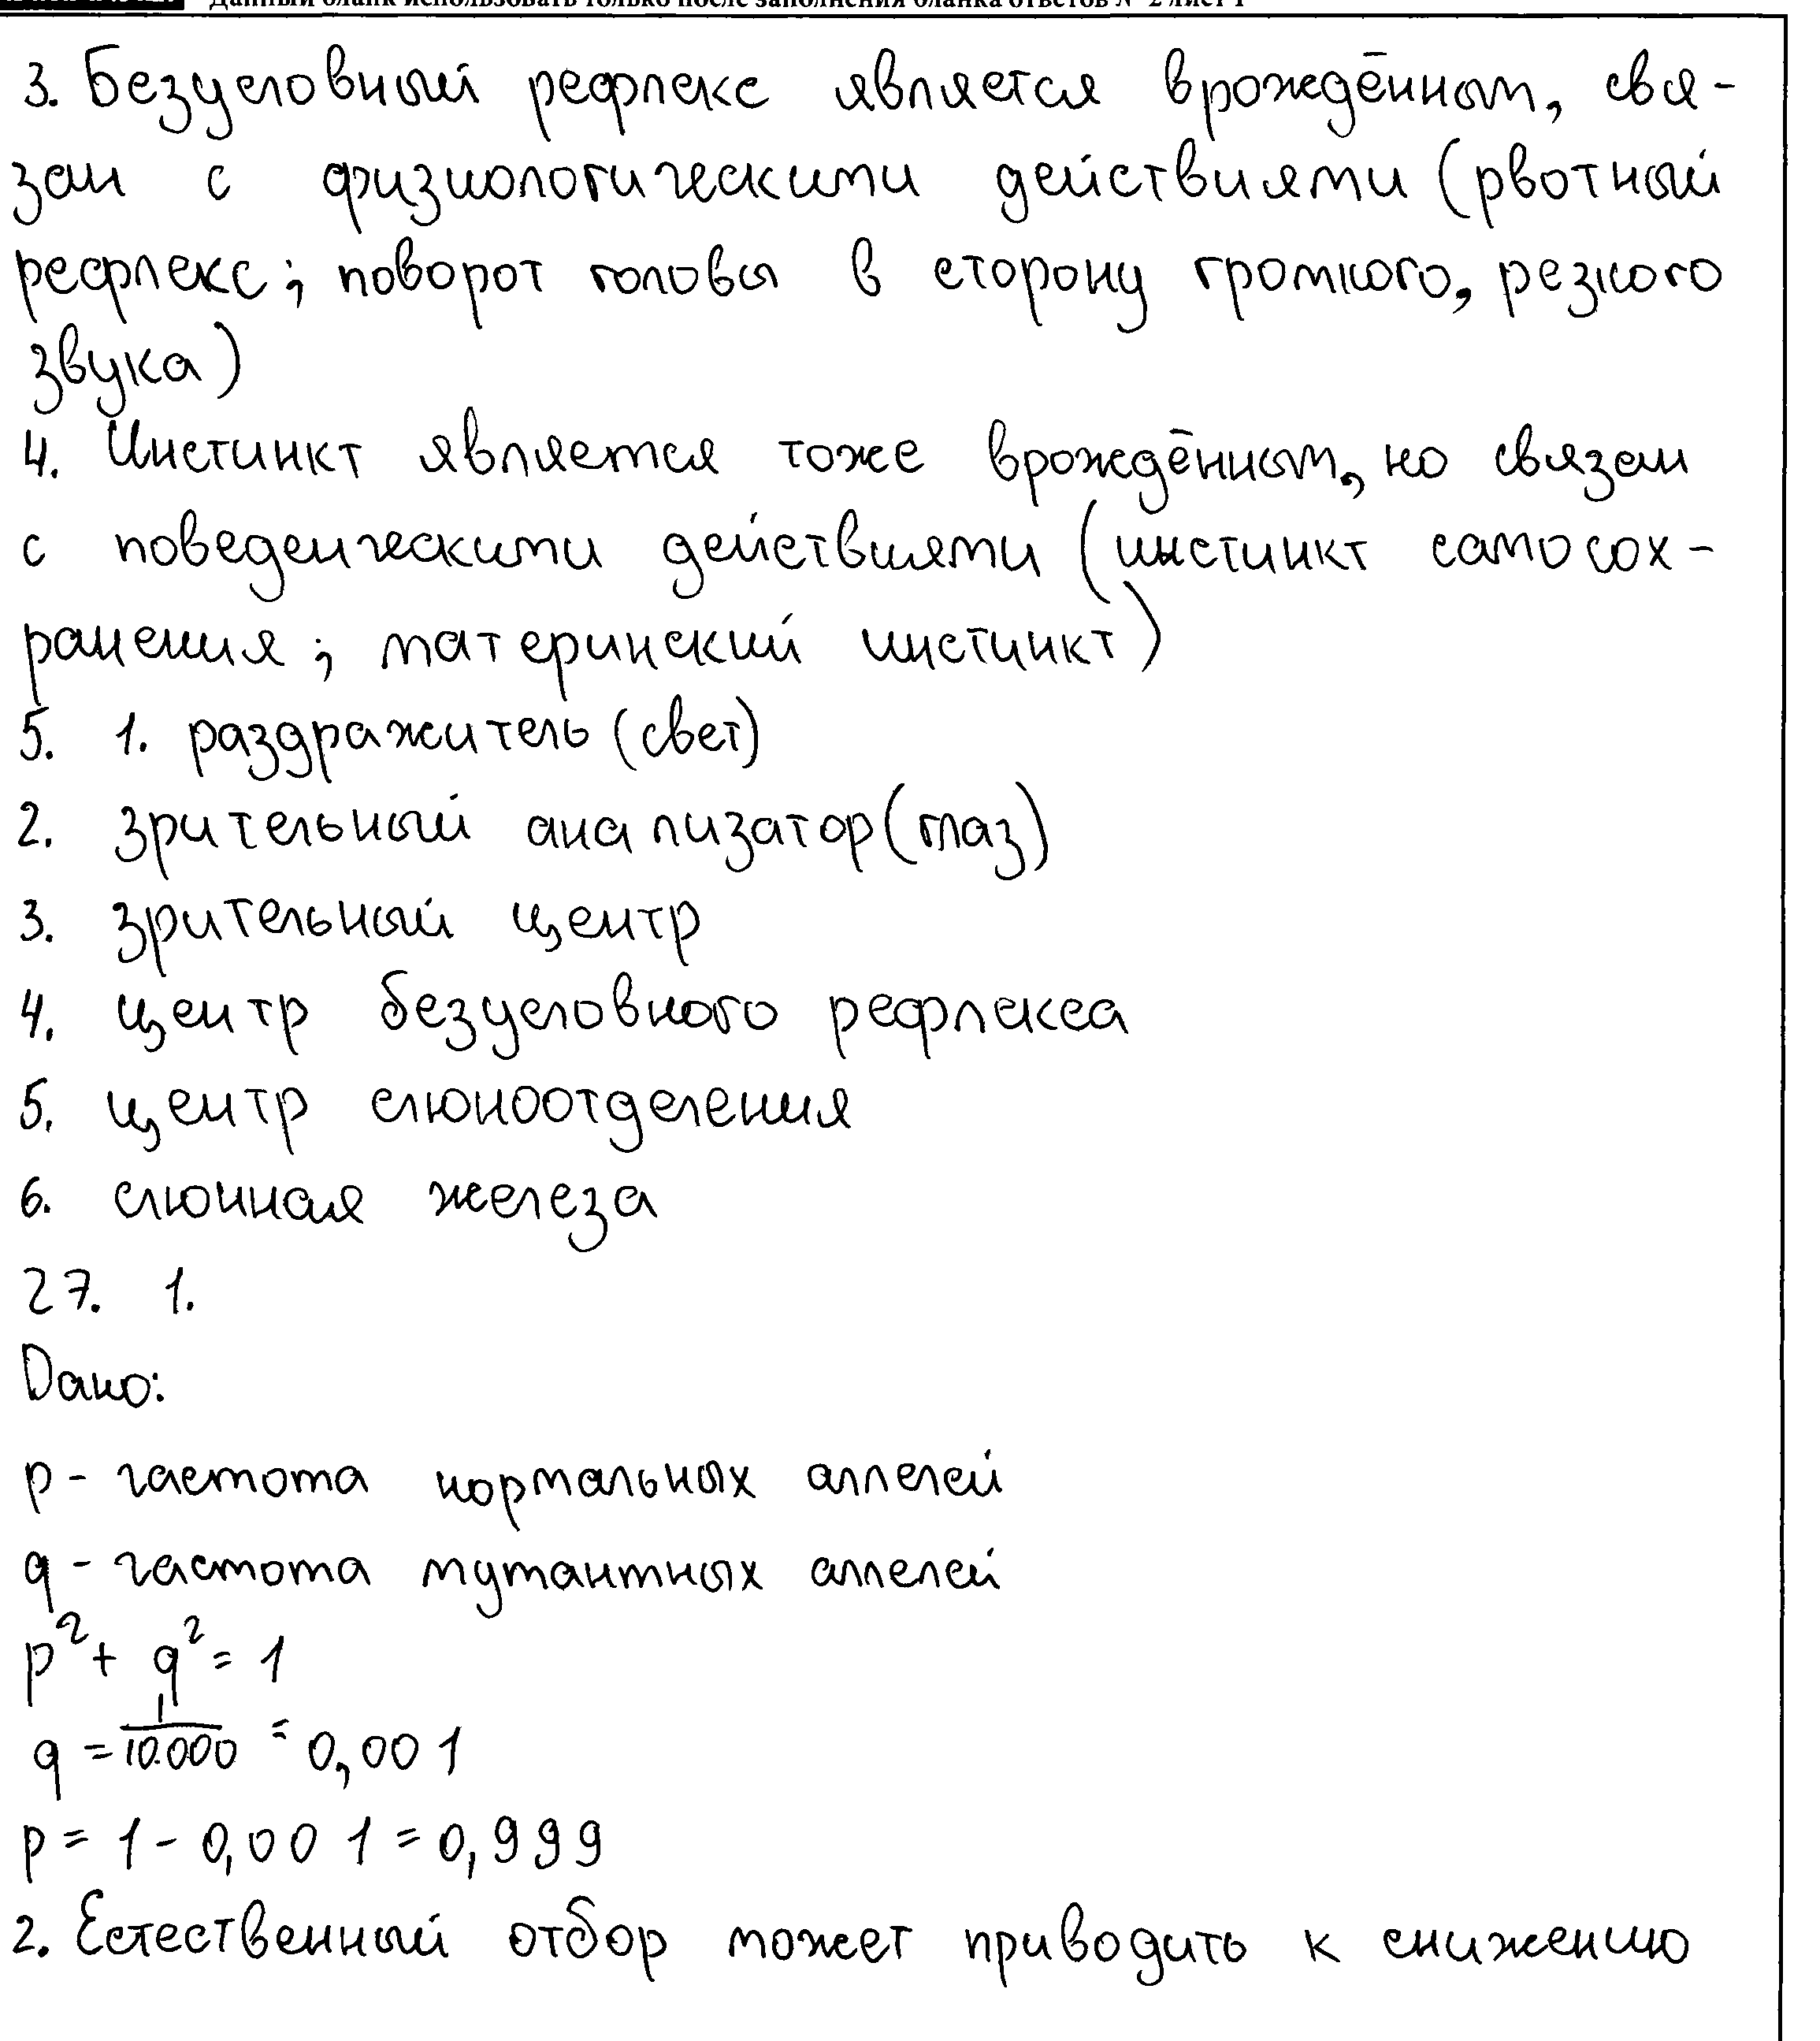 Данный бланк использовать только после заполнения бланка ответов № 2 лист 1
3. Безусловный рефлекс является врождённым, свя-
зан с физиологическими действиями (рвотный
рефлекс; поворот головы в сторону громкого, резкого
звука)
4. Инстинкт является тоже врождённым, но связан
с поведенческими действиями (инстинкт самосох-
ранения; материнский инстинкт)
5. 1. раздражитель (свет)
2. зрительный анализатор (глаз)
3. зрительный центр
4. центр безусловного рефлекса
5. центр слюноотделения
6. слюнная железа
27. 1.
Дано:
p - частота нормальных аллелей
q - частота мутантных аллелей
p² + q² = 1
q = 1/10.000 = 0,001
p = 1 - 0,001 = 0,999
2. Естественный отбор может приводить к снижению